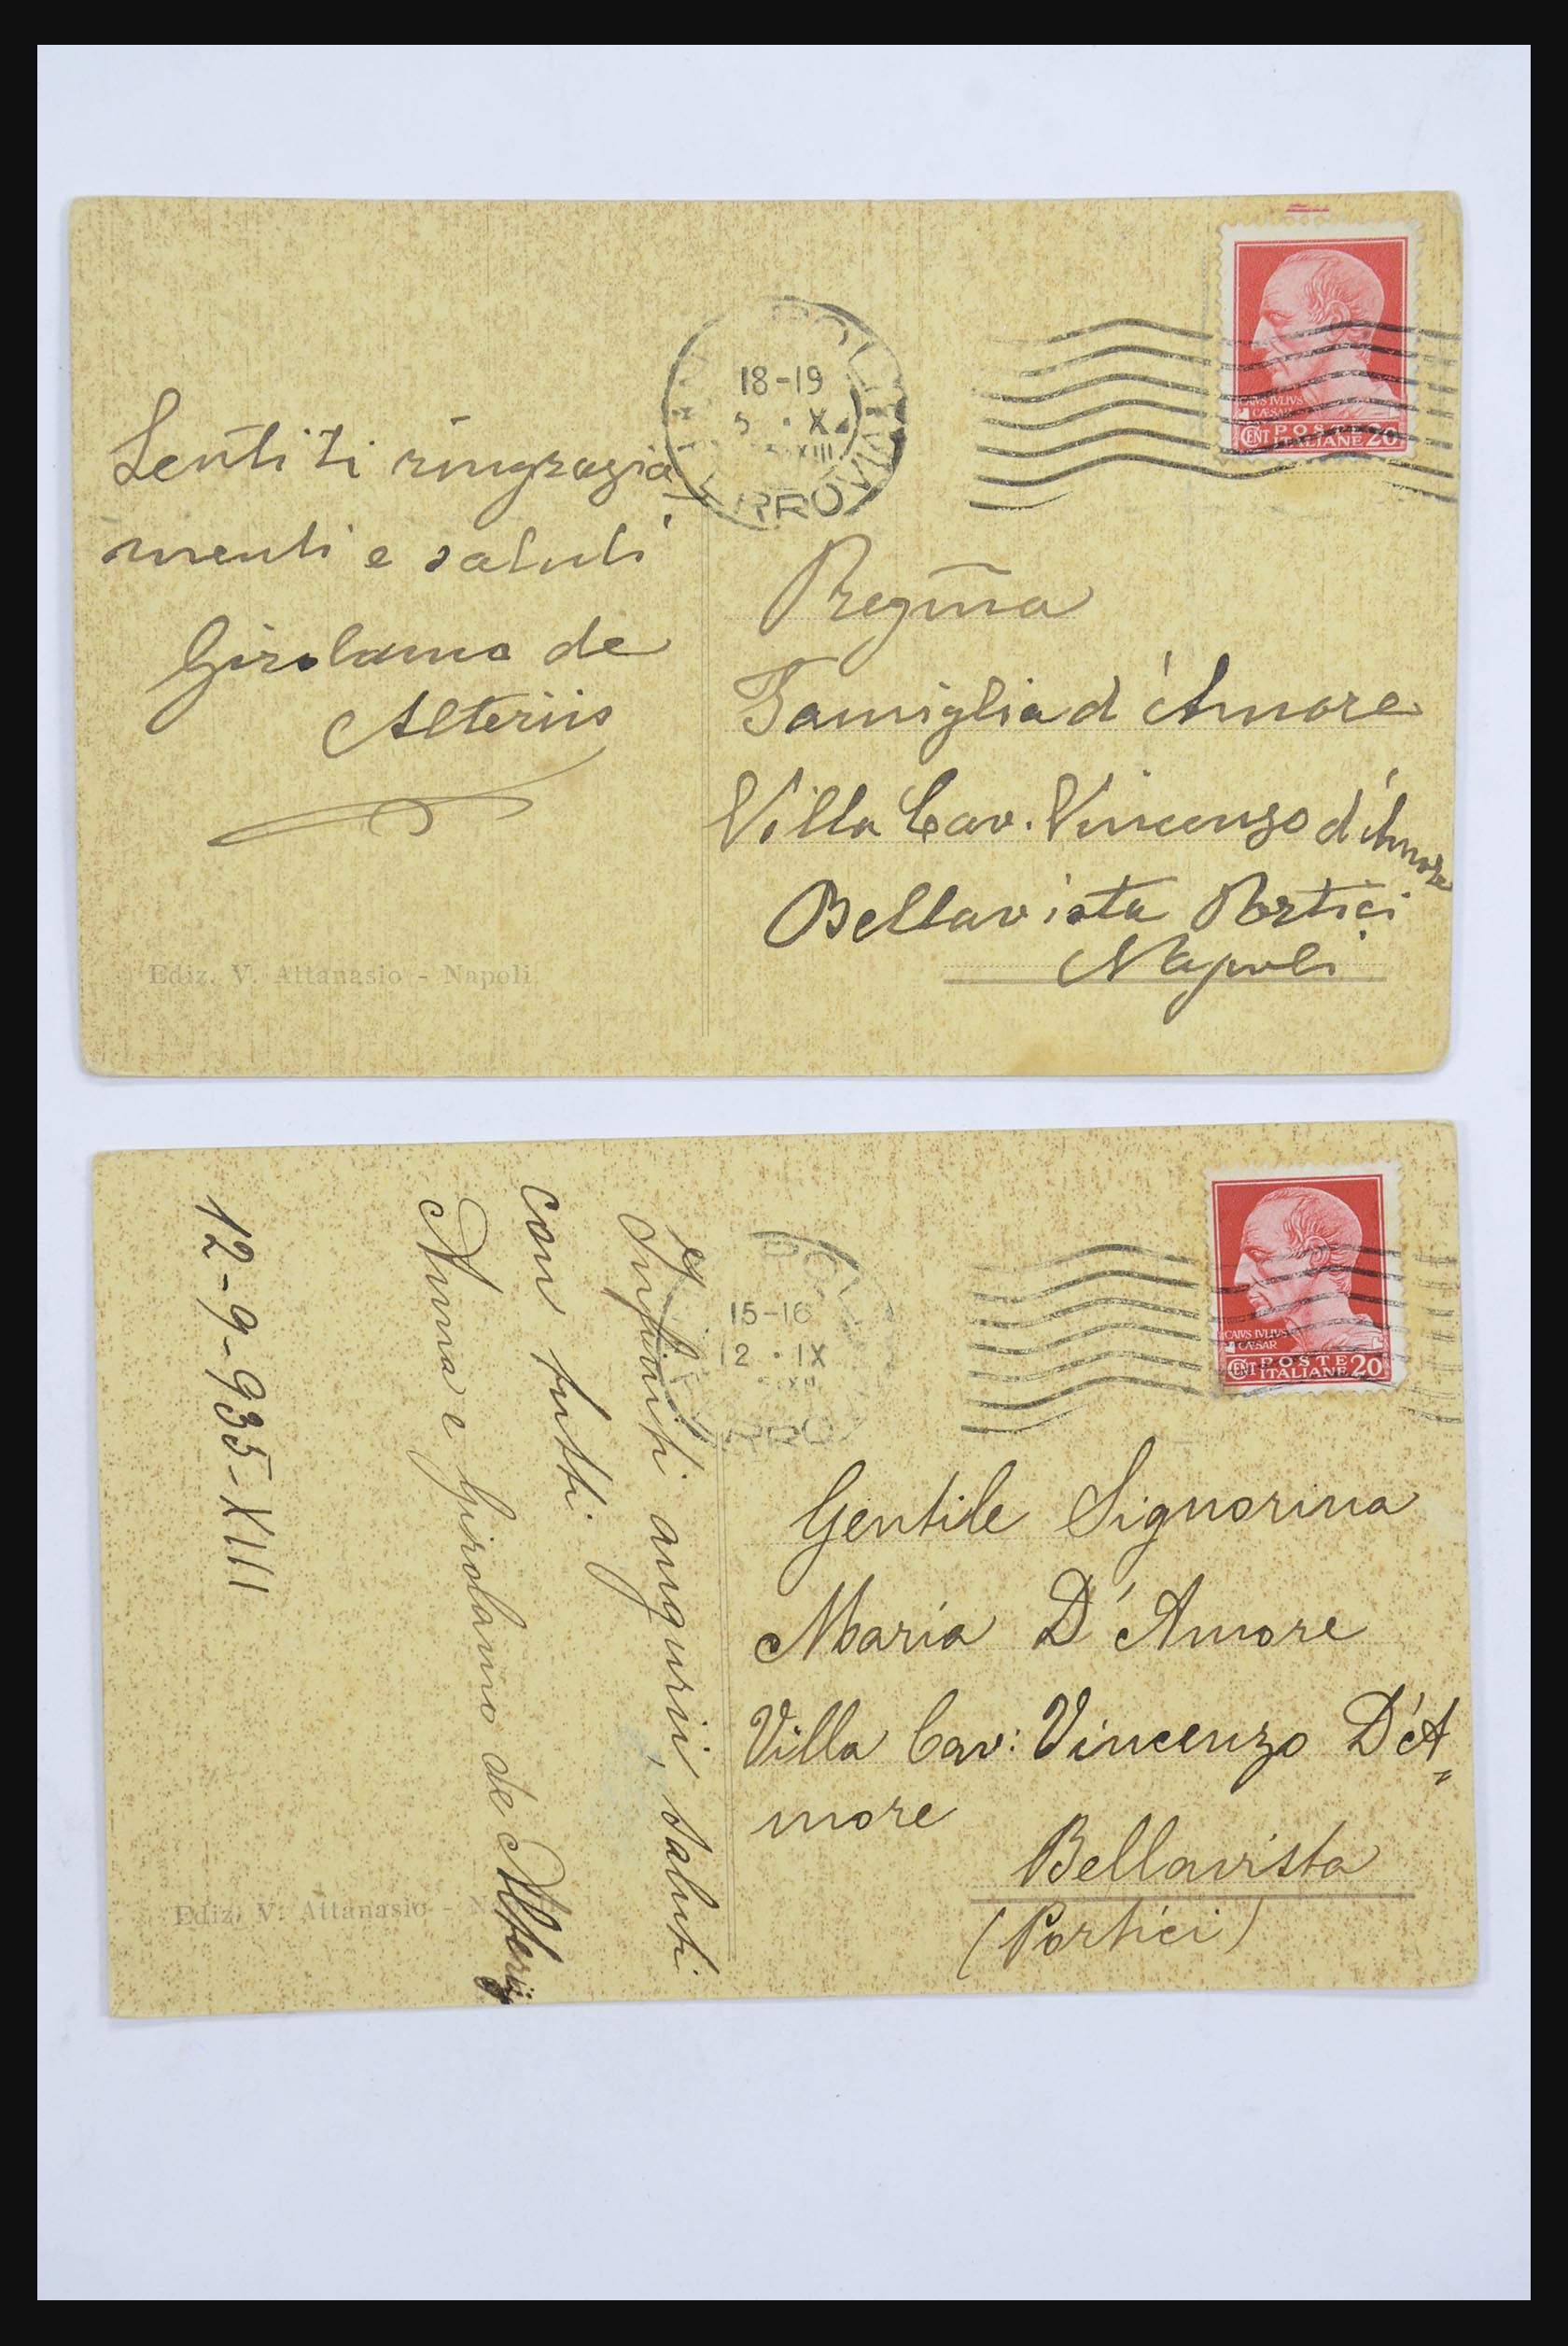 18-19
5 · X
XIII
CAIVS IVLIVS
CÆSAR
CENT POSTE ITALIANE 20
Sentiti ringrazia
menti e saluti
Girolamo de
Alteriis
Regina
Famiglia d'Amore
Villa Cav. Vincenzo d'Amore
Bellavista Portici
Napoli
Ediz. V. Attanasio - Napoli
15-16
12 · IX
CAIVS IVLIVS
CÆSAR
CENT POSTE ITALIANE 20
auguri, saluti
con tutti.
Anna e Girolamo de Alteriis
12-9-935-XIII
Gentile Signorina
Maria D'Amore
Villa Cav: Vincenzo D'A=
more
Bellavista
(Portici)
Ediz. V. Attanasio - N